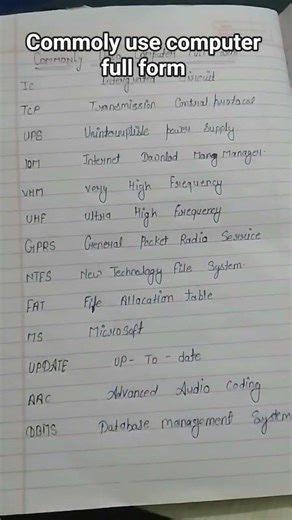 Commoly use computer
full form
Commonly
IC Intergrated Circuit
TCP Transmission Control protocal
UPS Uninterruptible power Supply
IDM Internet Download Mang Manager.
VHM very High Frequency
UHF ultra High Frequency
GPRS General Packet Radio Service
NTFS New Technology File System.
FAT File Allocation table
MS Microsoft
UPDATE UP - To - date
AAC Advanced Audio Coding
DBMS Database management System